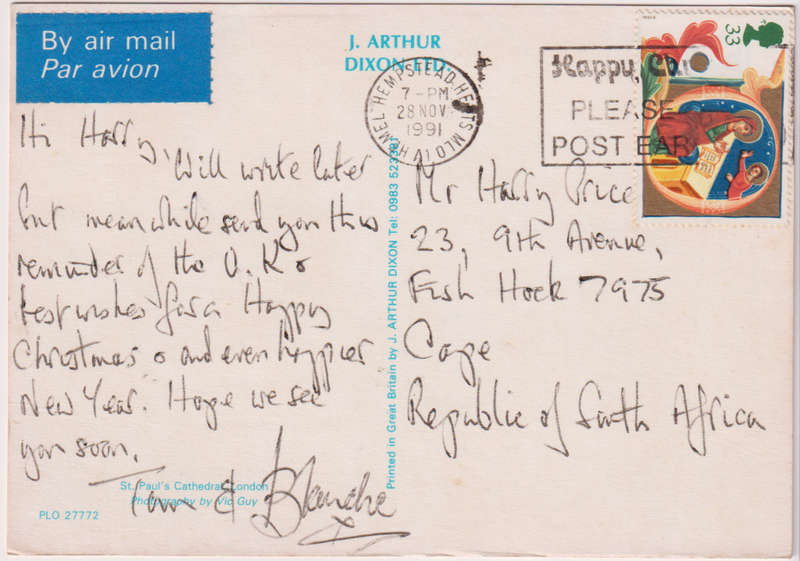 By air mail
Par avion
J. ARTHUR
DIXON LTD.
HEMEL HEMPSTEAD HERTS
7 - PM
28 NOV
1991
Happy
PLEASE
POST EAR
33
Hi Harry,
Will write later
but meanwhile send you this
reminder of the U.K &
best wishes for a Happy
Christmas & and even happier
New Year. Hope we see
you soon.
Tom & Blanche
Mr Harry Price
23, 9th Avenue,
Fish Hoek 7975
Cape
Republic of South Africa
Printed in Great Britain by J. ARTHUR DIXON Tel: 0983
St. Paul's Cathedral, London
Photography by Vic Guy
PLO 27772